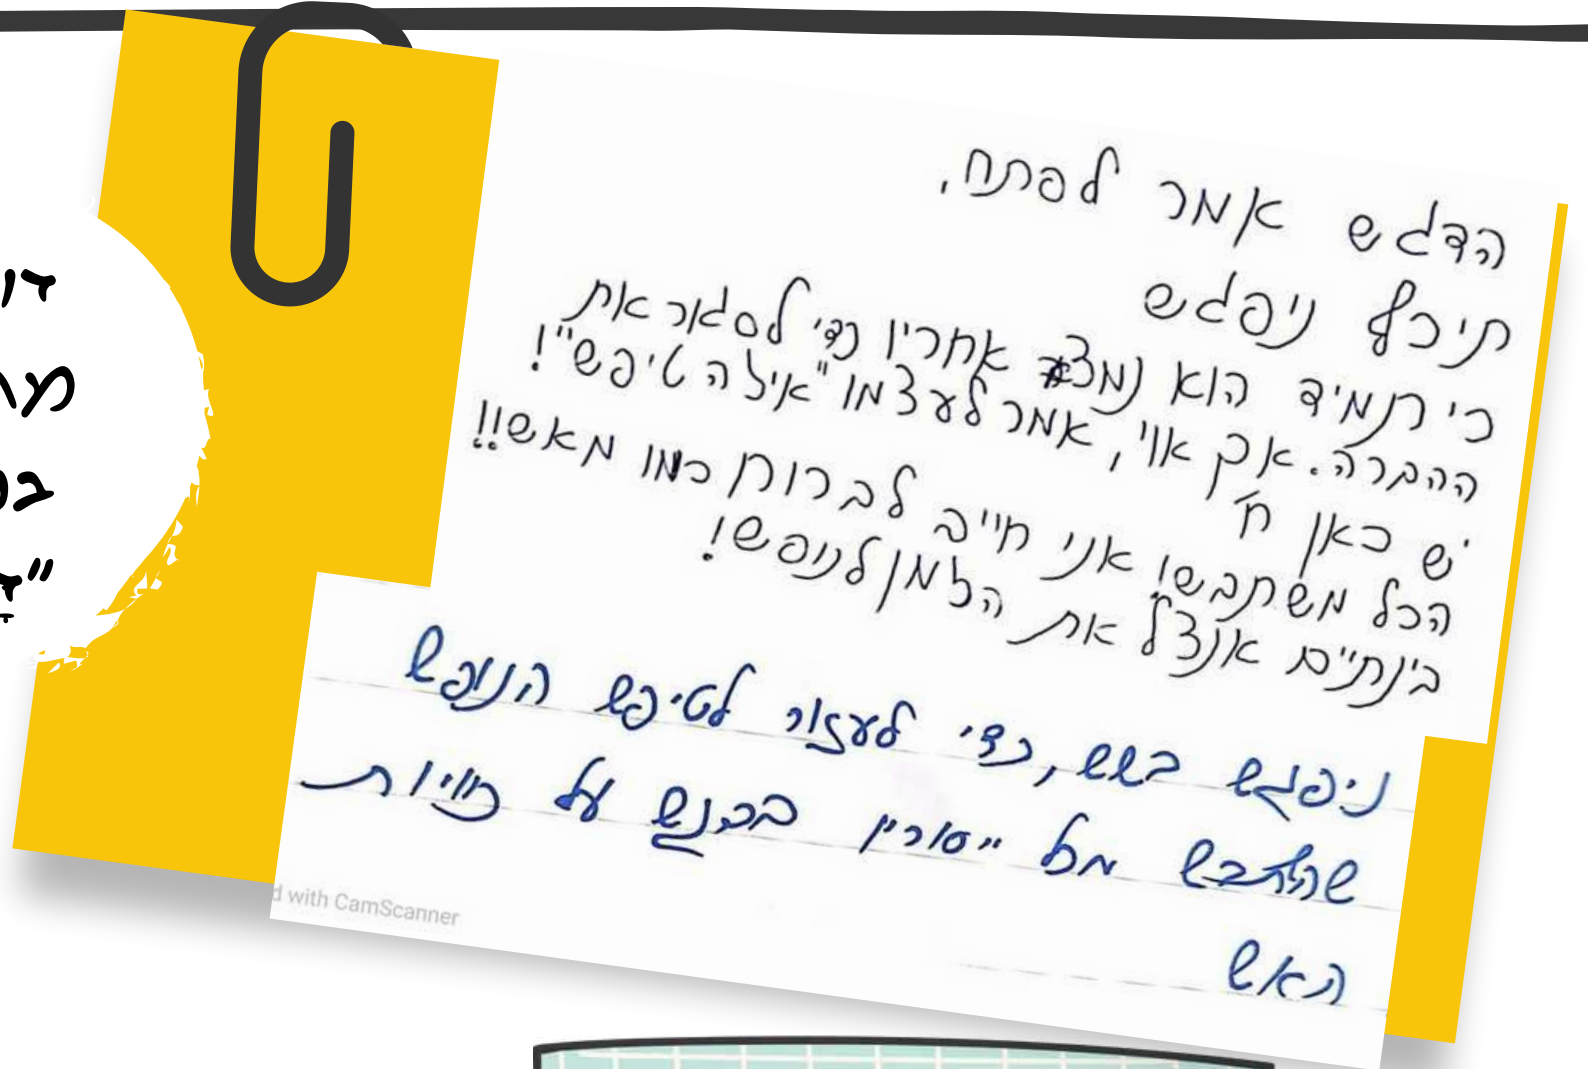 הדגש אמר לפתח,
תיכף ניפגש
כי תמיד הוא נמצא אחריו כדי לסגור את
ההברה. אך אוי, אמר לעצמו "איזה טיפש"!
יש כאן ח'
הכל משתבש! אני חייב לברוח כמו מאש!!
בינתיים אנצל את הזמן לנופש!
ניפגש בשש, כדי לעזור לטיפש הנופש
מכל ייסורין בכבש על
האש
d with CamScanner